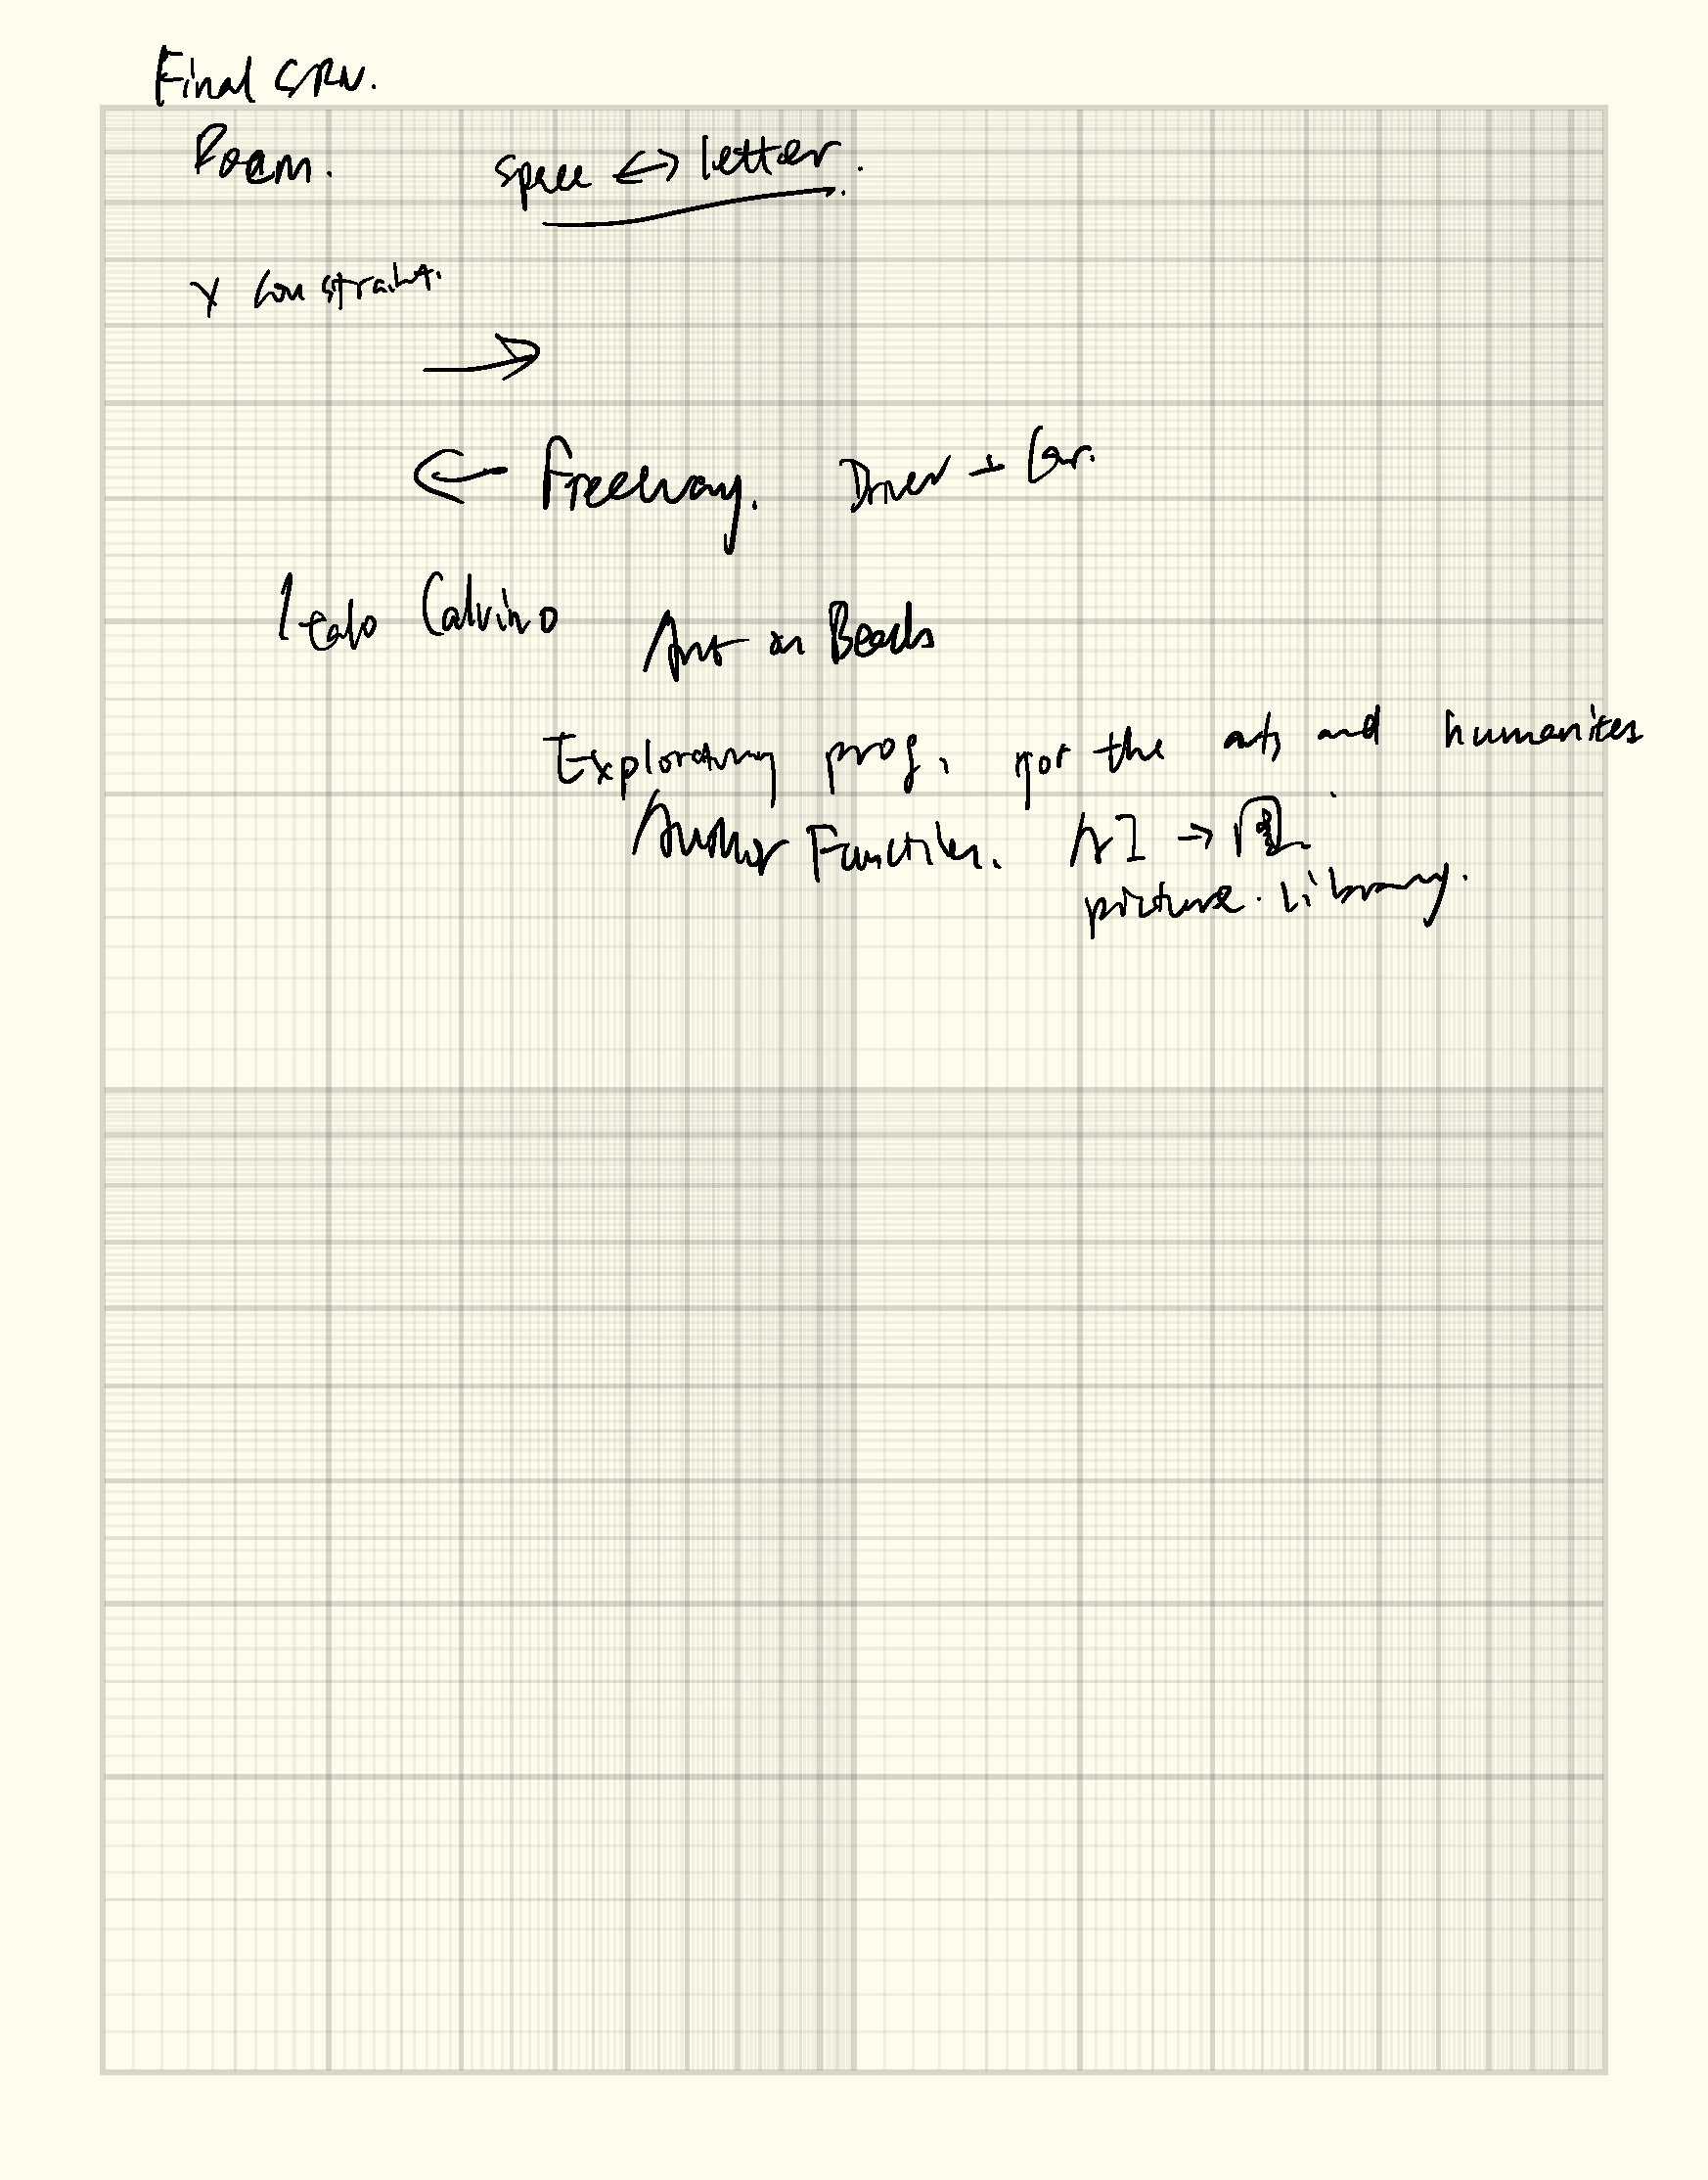 Final SRN.
Poem. space ↔ letter.
Y constraint.
→
← Freeway. Driver + Car.
Italo Calvino
Ant on Beads
Exploratory prog, for the arts and humanites
Author Function. AI →
picture. Library.